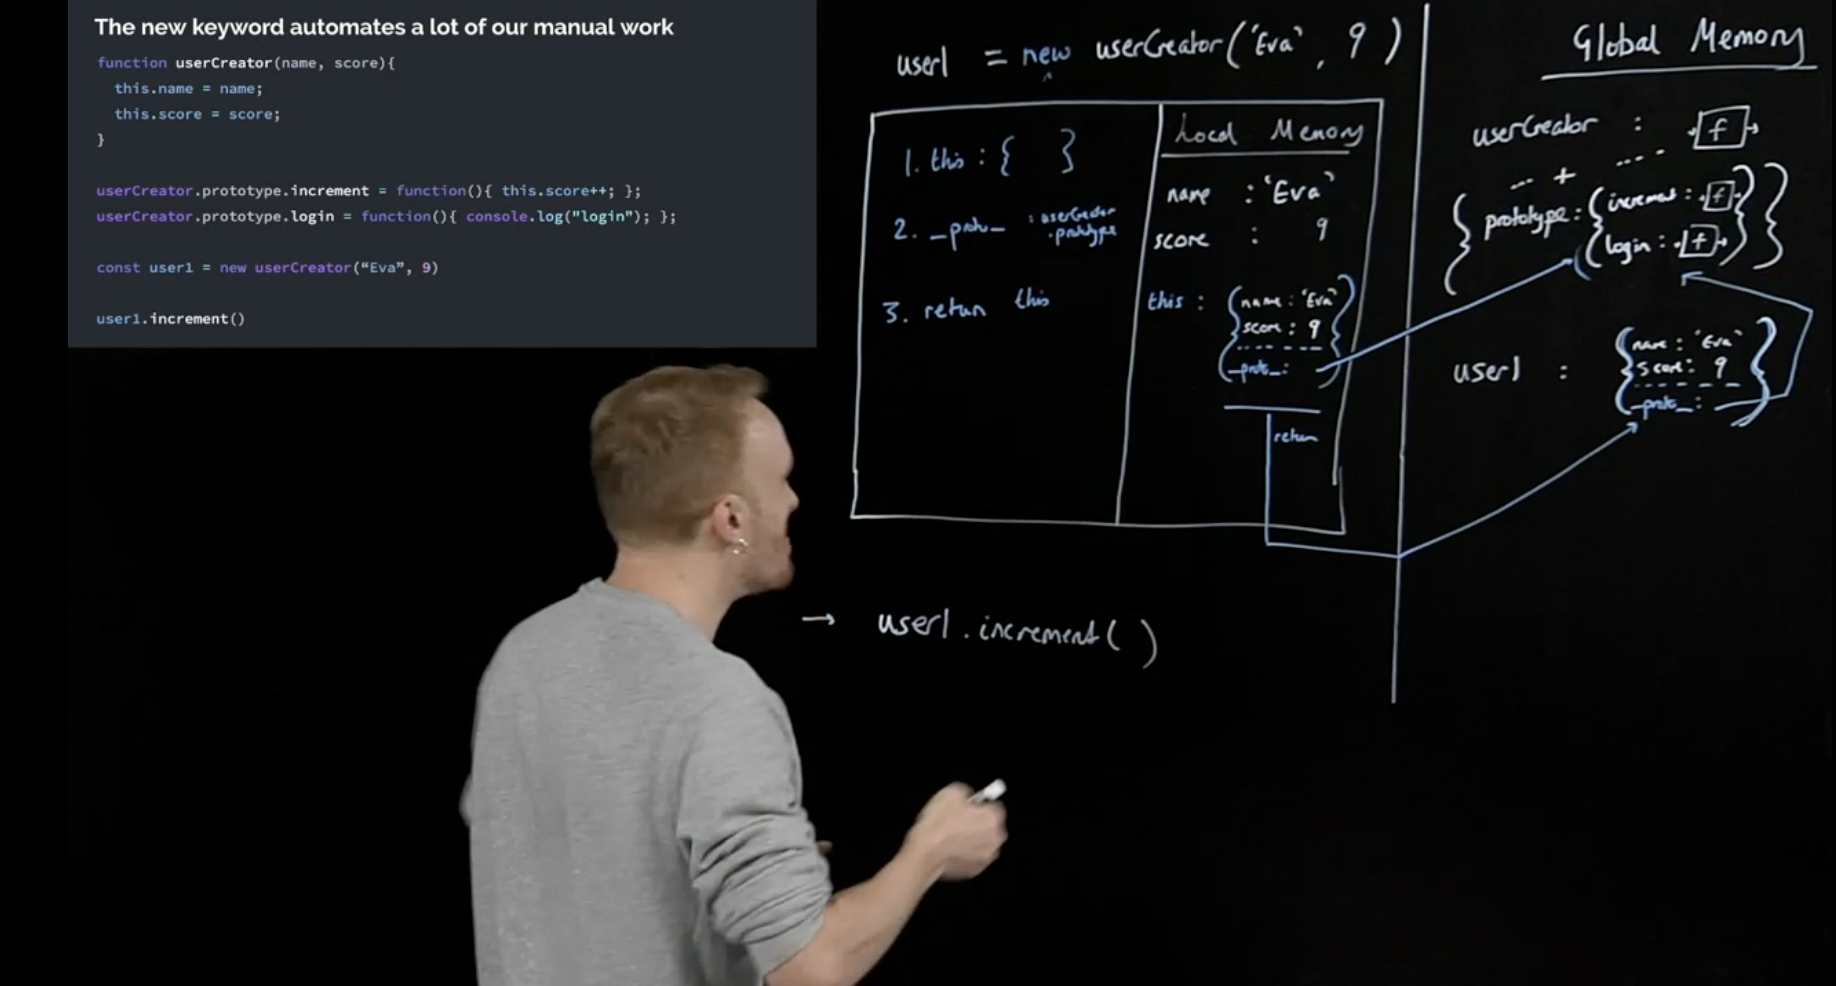 The new keyword automates a lot of our manual work
function userCreator(name, score){
this.name = name;
this.score = score;
}
userCreator.prototype.increment = function(){ this.score++; };
userCreator.prototype.login = function(){ console.log("login"); };
const user1 = new userCreator(“Eva”, 9)
user1.increment()
user1 = new userCreator('Eva', 9)
1. this : { }
2. _proto_ : userCreator
.prototype
3. return this
Local Memory
name : 'Eva'
score : 9
this : { name : 'Eva'
score : 9
_proto_ : }
return
→ user1.increment( )
Global Memory
userCreator : f
+
{ prototype : { increment : f
login : f } }
user1 : { name : 'Eva'
score : 9
_proto_ : }